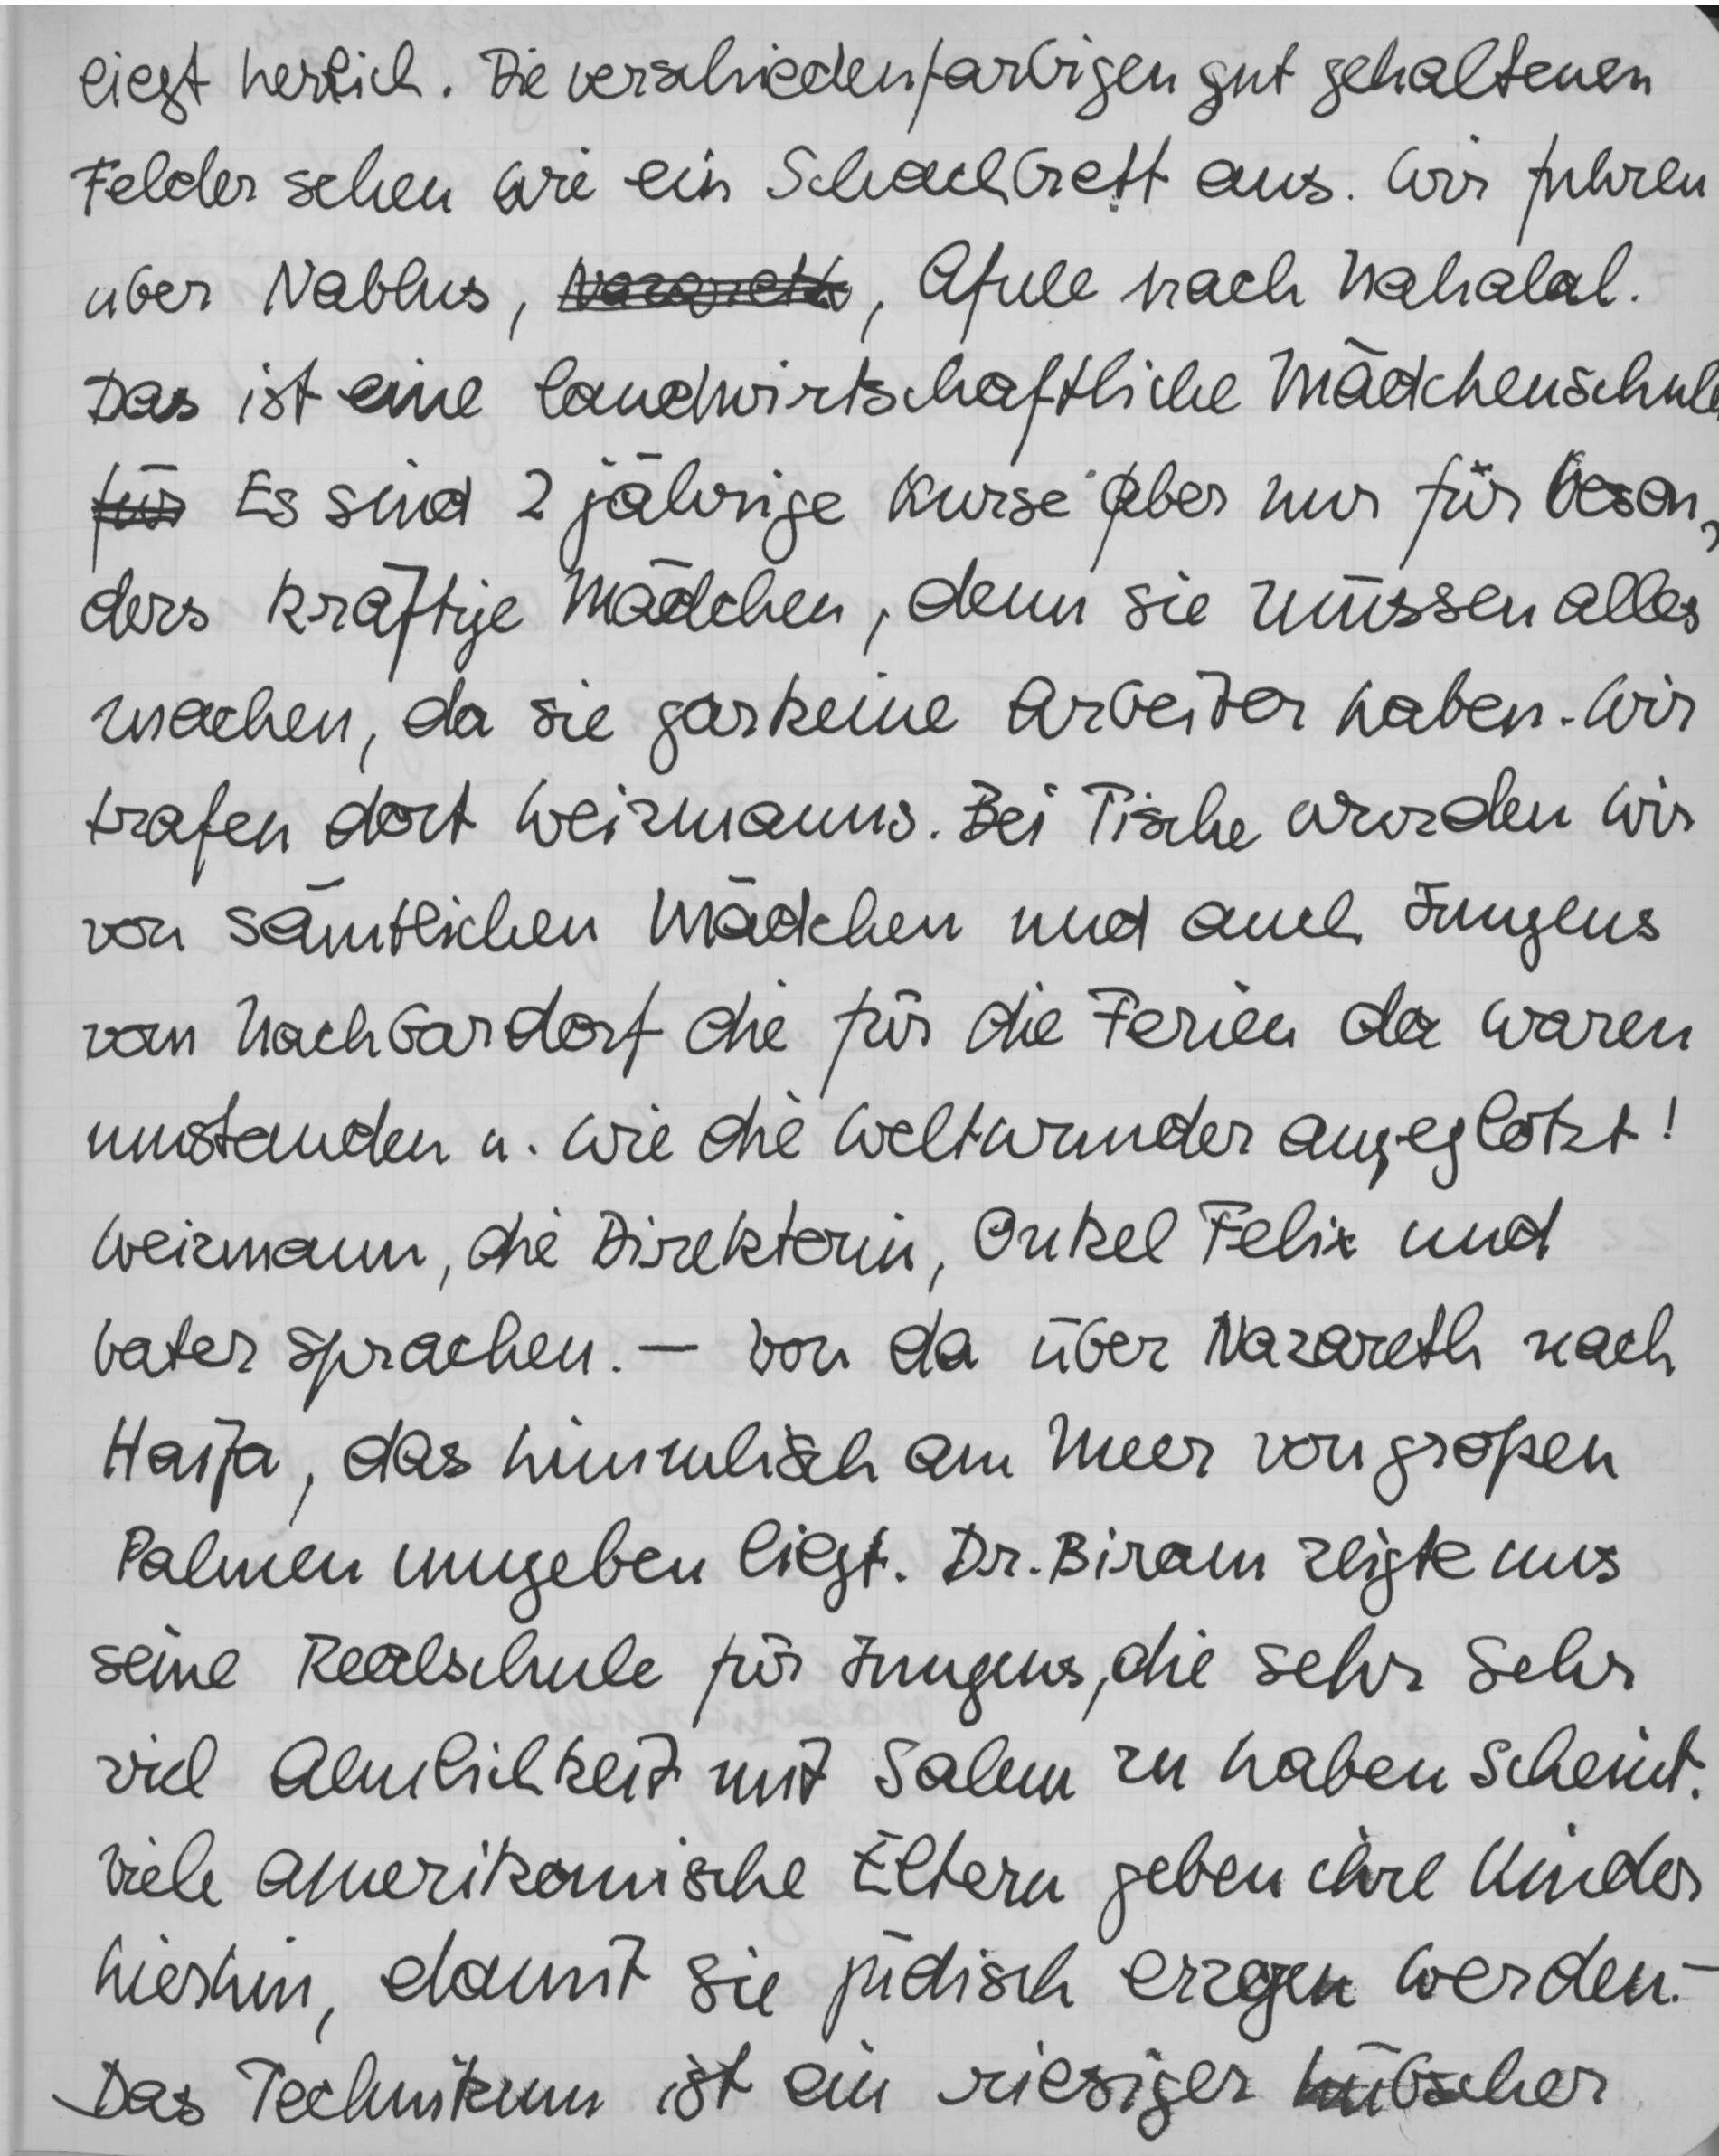 liegt herlich. Die verschiedenfarbigen gut gehaltenen
Felder sehen wie ein Schachbrett aus. Wir fuhren
über Nablus, ~~Nazareth~~, Afule nach Nahalal.
Das ist eine landwirtschaftliche Mädchenschule
~~für~~ Es sind 2 jährige Kurse aber nur für beson,
ders kräftige Mädchen, denn sie müssen alles
machen, da sie garkeine Arbeiter haben. Wir
trafen dort Weizmanns. Bei Tische wurden wir
von sämtlichen Mädchen und auch Jungens
vom Nachbardorf die für die Ferien da waren
umstanden u. wie die Weltwunder angeglotzt!
Weizmann, die Direktorin, Onkel Felix und
Vater sprachen. — Von da über Nazareth nach
Haifa, das himmlisch am Meer von großen
Palmen umgeben liegt. Dr. Biram zeigte uns
seine Realschule für Jungens, die sehr sehr
viel Ähnlichkeit mit Salem zu haben scheint.
Viele amerikanische Eltern geben ihre Kinder
hierhin, damit sie jüdisch erzogen werden.—
Das Technikum ist ein riesiger hübscher